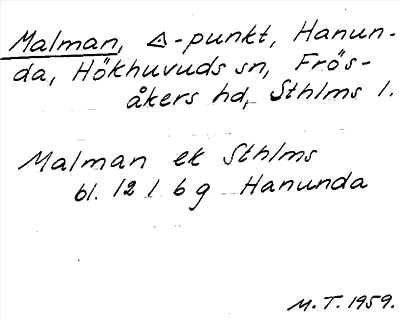 Malman, ◬-punkt, Hanun-
da, Hökhuvuds sn, Frös-
åkers hd, Sthlms l.
Malman ek Sthlms
bl. 12 I 6 g Hanunda
M. T. 1959.